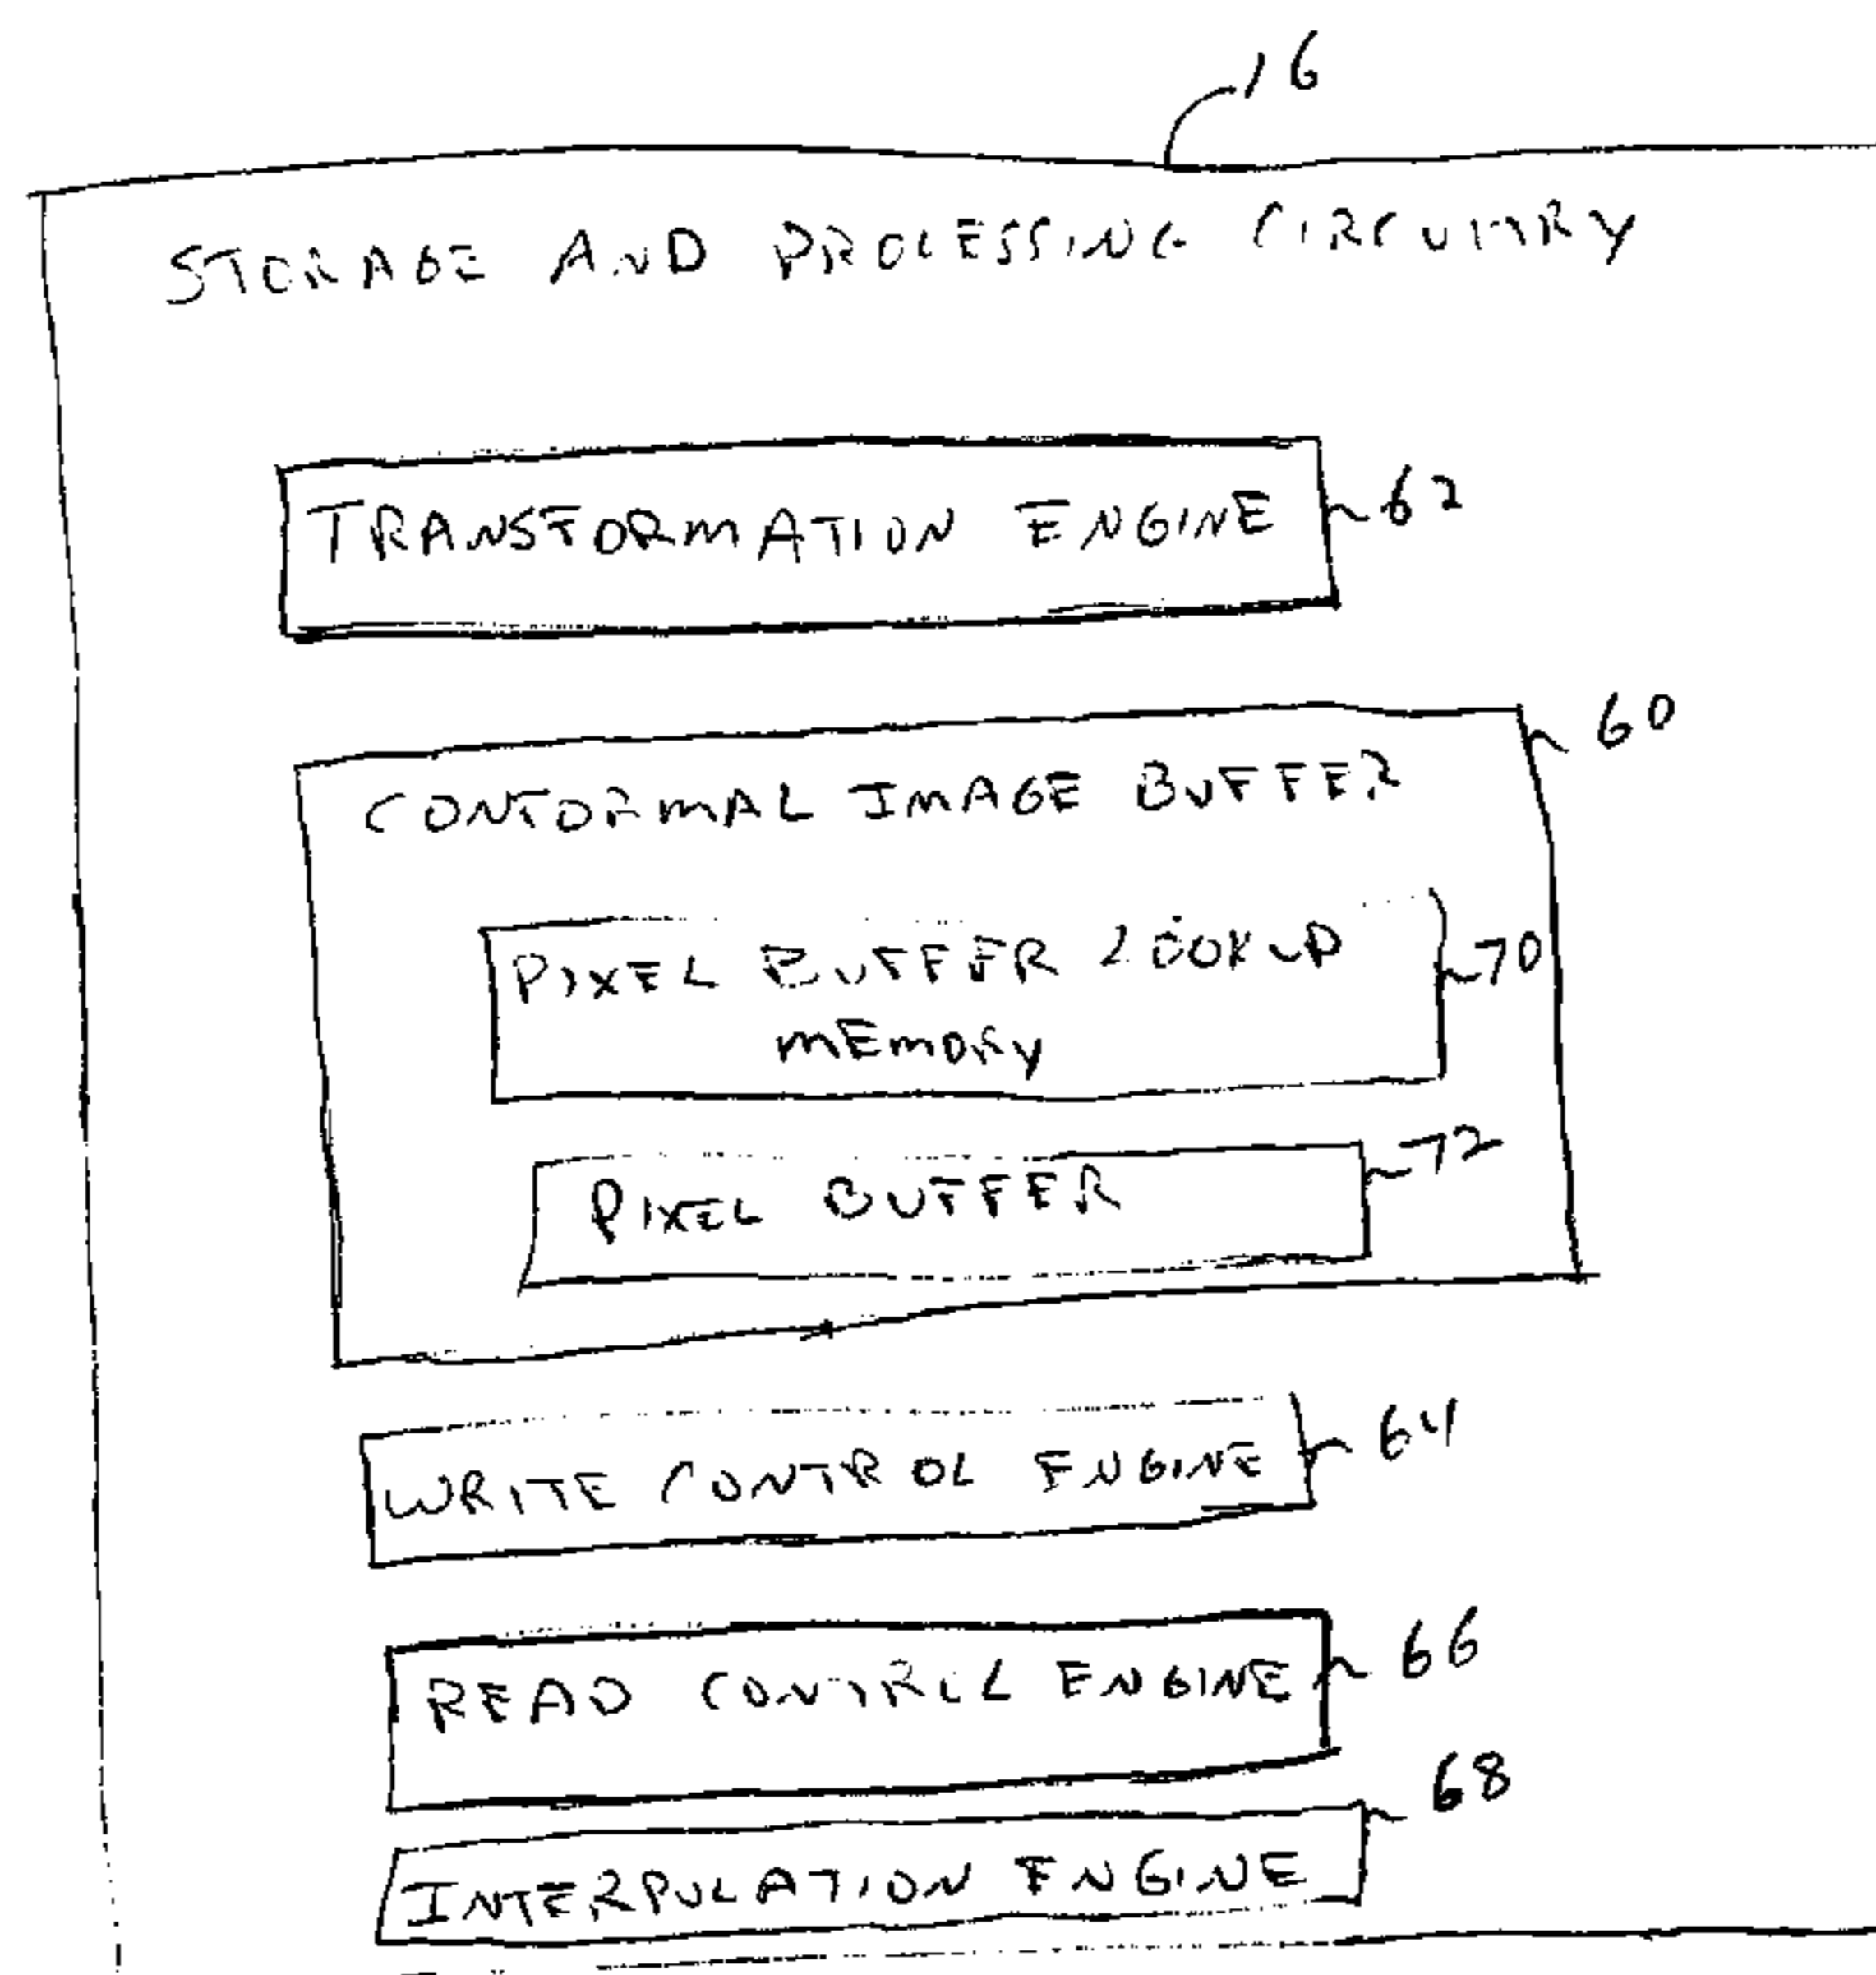 16
STORAGE AND PROCESSING CIRCUITRY
TRANSFORMATION ENGINE 62
60
CONFORMAL IMAGE BUFFER
PIXEL BUFFER LOOKUP 70
MEMORY
PIXEL BUFFER 72
WRITE CONTROL ENGINE 64
READ CONTROL ENGINE 66
68
INTERPOLATION ENGINE